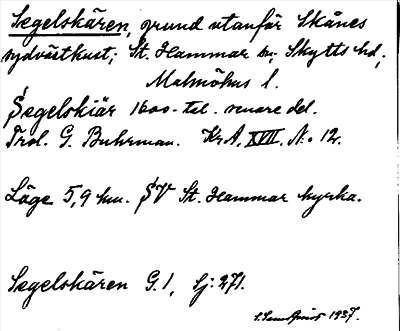 Segelskären, grund utanför Skånes
sydvästkust; St. Hammar sn; Skytts hd,
Malmöhus l.
Segelskiär 1600-tal. senare del.
Trol. G. Buhrman. Kr A. XVII. N:o 12.
Läge 5,9 km. SV St. Hammar kyrka.
Segelskären G. 1, Sj: 271.
1937.